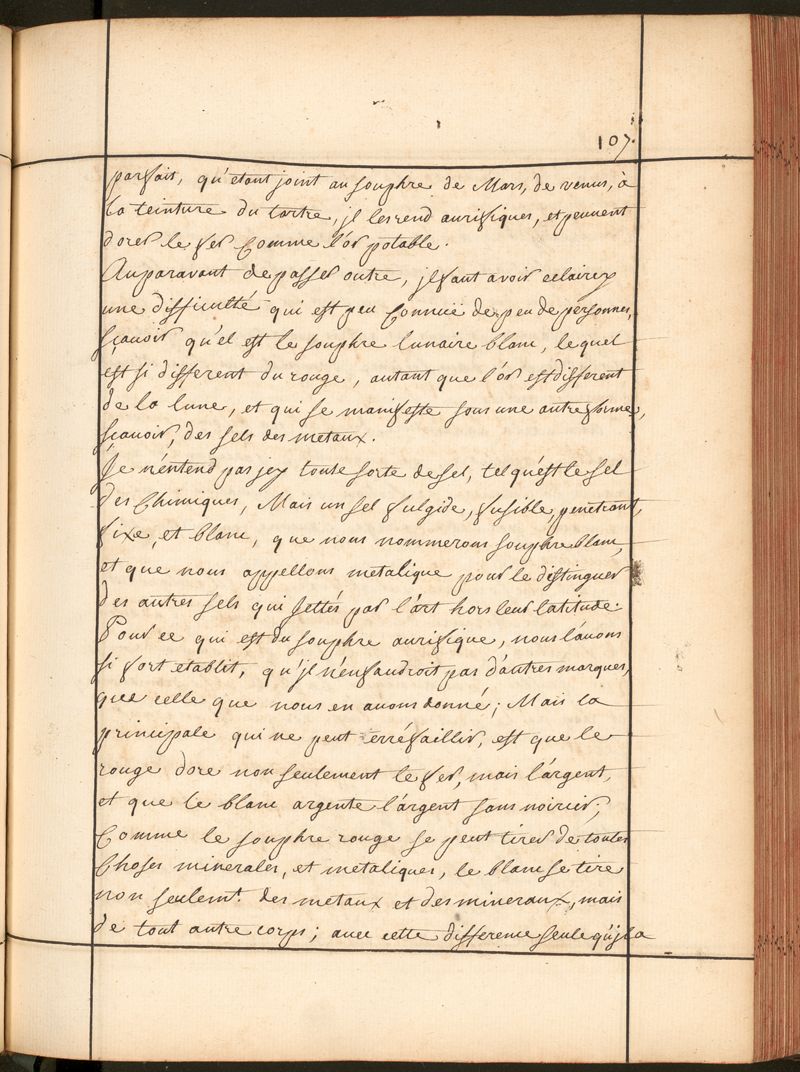 107.
parfait, qu'etant joint au souphre de Mars, de venus, à
la teinture du tartre, jl les rend aurifiques, et peuvent
dorer le fer Comme l'or potable.
Auparavant de passer outre, jl faut avoir eclairey
une difficulté qui est peu Connuë de peu de personnes,
sçavoir qu'el est le souphre lunaire blanc, le quel
est si different du rouge, autant que l'or est different
de la lune, et qui se manifeste sous une autre forme,
sçavoir, des sels des metaux.
Je n'entend pas jcy toute sorte de sel, tel qu'est le sel
des Chimiques, Mais un sel fulgide, fusible, penetrant,
fixe, et blanc, que nous nommerons souphre blanc,
et que nous appellons metalique pour le distinguer
des autres sels qui jettés par l'art hors leur latitude.
Pour ce qui est du souphre aurifique, nous l'avons
si fort etablit, qu'jl n'en faudroit pas d'autres marques,
que celle que nous en avons donné; Mais la
principale qui ne peut erré faillir, est que le
rouge dore non seulement le fer, mais l'argent,
et que le blanc argente l'argent sans noircir;
Comme le souphre rouge se peut tirer de toutes
Choses minerales, et metaliques, le blanc se tire
non seulemt. des metaux et des mineraux, mais
de tout autre corps; avec cette difference seule qu'jl a